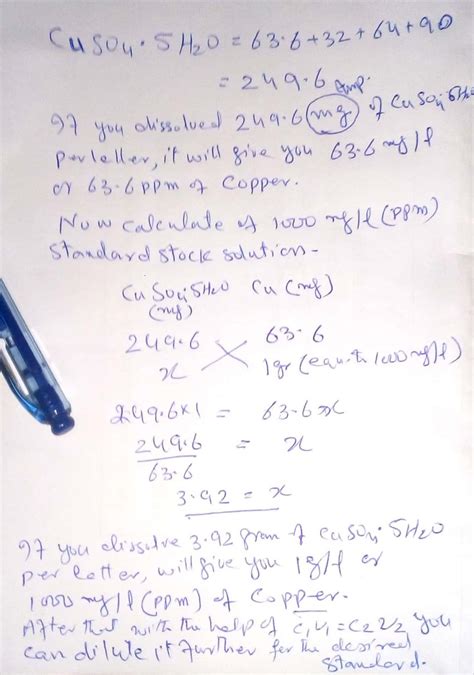 CuSO4·5H2O = 63.6+32+64+90
= 249.6 amp.
If you dissolved 249.6 (mg) of CuSO4·5H2O
per letter, it will give you 63.6 mg/l
or 63.6 ppm of Copper.
Now calculate of 1000 mg/l (ppm)
Standard stock solution-
CuSO4·5H2O Cu (mg)
(mg)
249.6 63.6
x 1gr (equ. to 1000 mg/l)
249.6x1 = 63.6x
249.6 = x
63.6
3.92 = x
If you dissolve 3.92 gram of CuSO4·5H2O
per letter, will give you 1g/l or
1000 mg/l (ppm) of Copper.
After that with the help of C1V1=C2V2 you
can dilute it further for the desired
Standard.